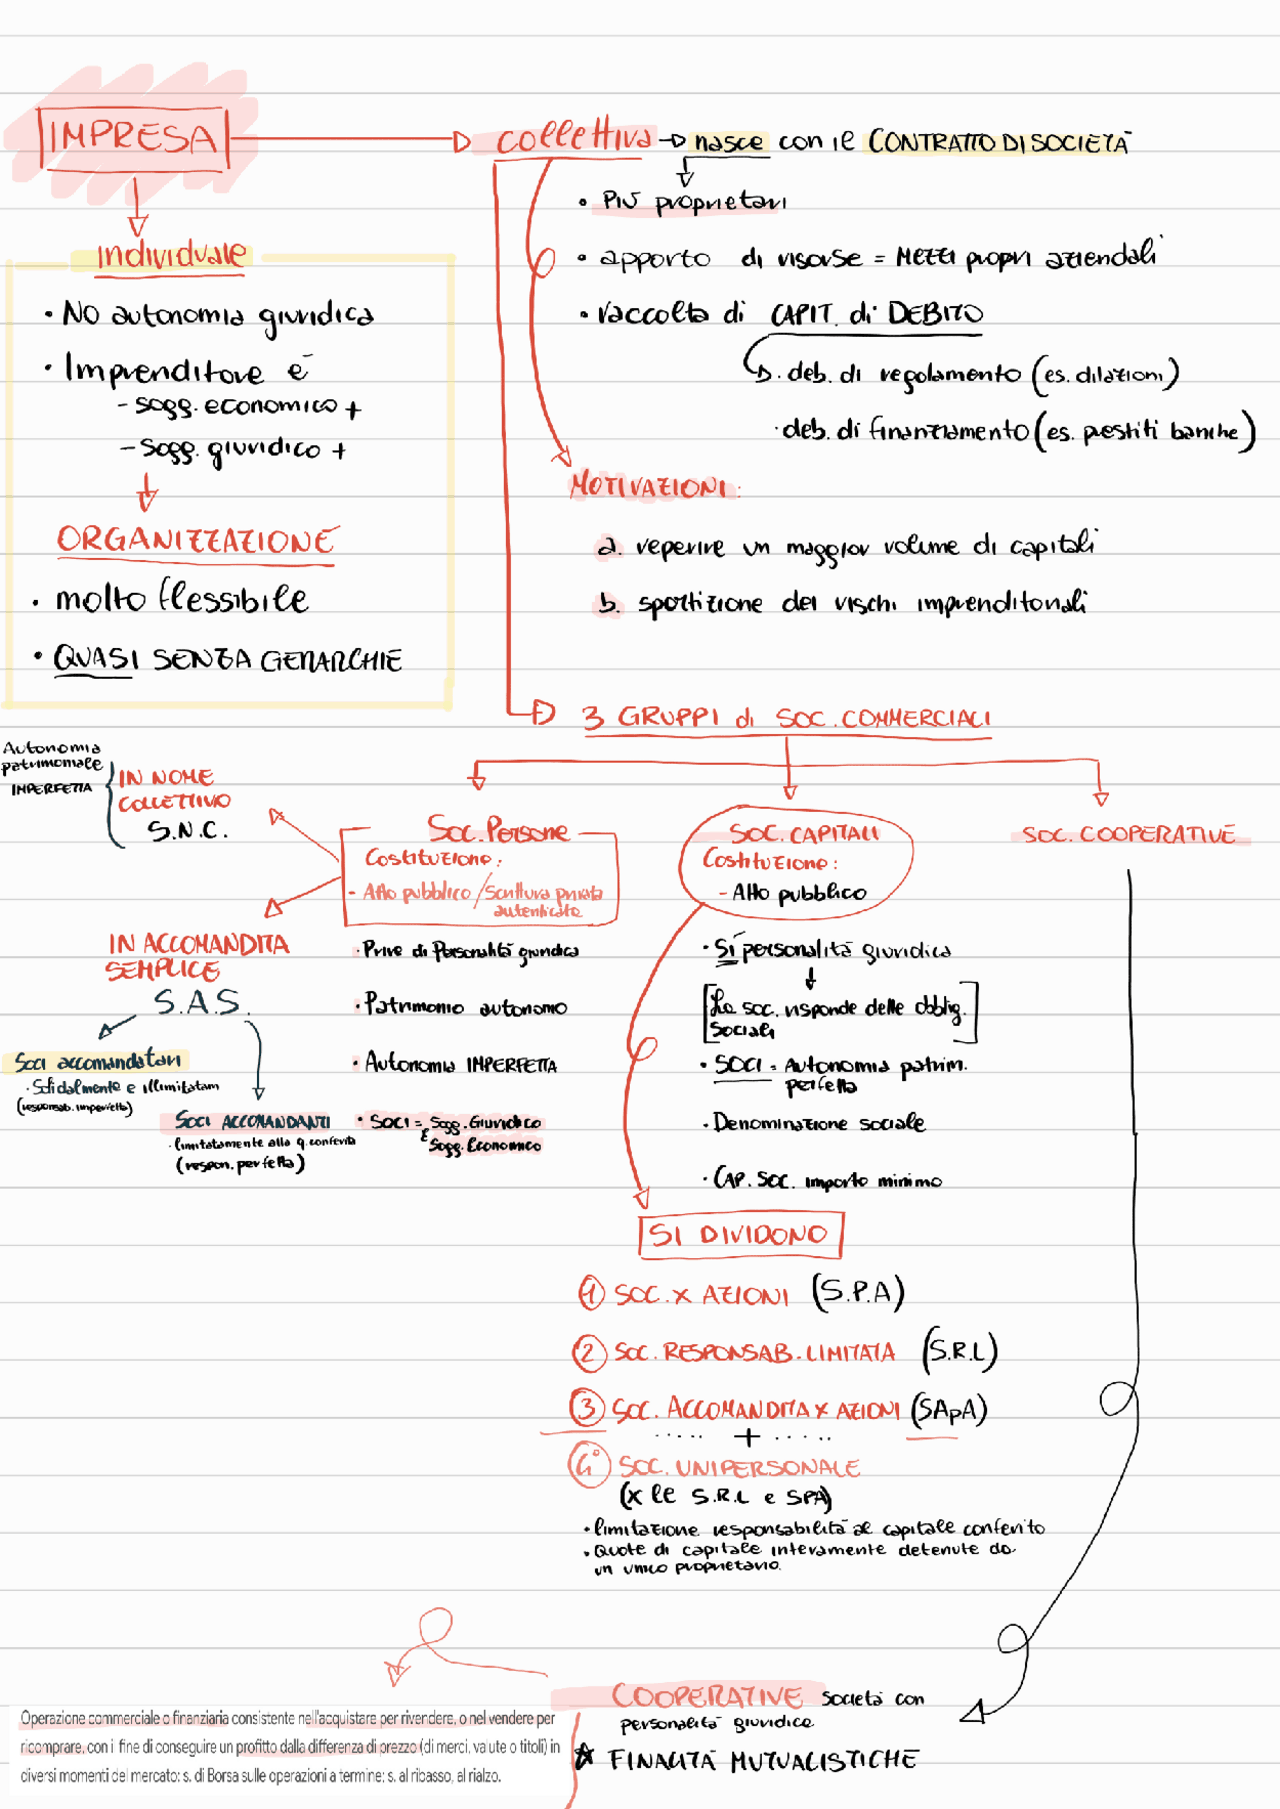 IMPRESA
collettiva → nasce con il CONTRATTO DI SOCIETÀ
• Più proprietari
• apporto di risorse = Mezzi propri aziendali
• raccolta di CAPIT. di DEBITO
• deb. di regolamento (es. dilazioni)
• deb. di finanziamento (es. prestiti banche)
MOTIVAZIONI:
a. reperire un maggior volume di capitali
b. spartizione dei rischi imprenditoriali
individuale
• No autonomia giuridica
• Imprenditore è
- sogg. economico +
- sogg. giuridico +
ORGANIZZAZIONE
• molto flessibile
• QUASI SENZA GERARCHIE
3 GRUPPI di SOC. COMMERCIALI
Autonomia
patrimoniale
IMPERFETTA
IN NOME
COLLETTIVO
S.N.C.
IN ACCOMANDITA
SEMPLICE
S.A.S.
Soci accomandatari
• Solidalmente e illimitatam
(responsab. imperfetta)
Soci ACCOMANDANTI
• limitatamente alla q. conferita
(respon. perfetta)
Soc. Persone
Costituzione:
- Atto pubblico / Scrittura privata
autenticata
• Prive di Personalità giuridica
• Patrimonio autonomo
• Autonomia IMPERFETTA
• SOCI = Sogg. Giuridico
e Sogg. Economico
SOC. CAPITALI
Costituzione:
- Atto pubblico
• Sì personalità giuridica
[La soc. risponde delle obblig.
sociali]
• SOCI = Autonomia patrim.
perfetta
• Denominazione sociale
• CAP. SOC. importo minimo
SI DIVIDONO
1 SOC. x AZIONI (S.P.A)
2 SOC. RESPONSAB. LIMITATA (S.R.L)
3 SOC. ACCOMANDITA x AZIONI (SApA)
..... + .....
4° SOC. UNIPERSONALE
(x le S.R.L e SPA)
• limitazione responsabilità al capitale conferito
• Quote di capitale interamente detenute da
un unico proprietario.
SOC. COOPERATIVE
COOPERATIVE società con
personalità giuridica
★ FINALITÀ MUTUALISTICHE
Operazione commerciale o finanziaria consistente nell'acquistare per rivendere, o nel vendere per
ricomprare, con i fine di conseguire un profitto dalla differenza di prezzo (di merci, valute o titoli) in
diversi momenti del mercato: s. di Borsa sulle operazioni a termine; s. al ribasso, al rialzo.